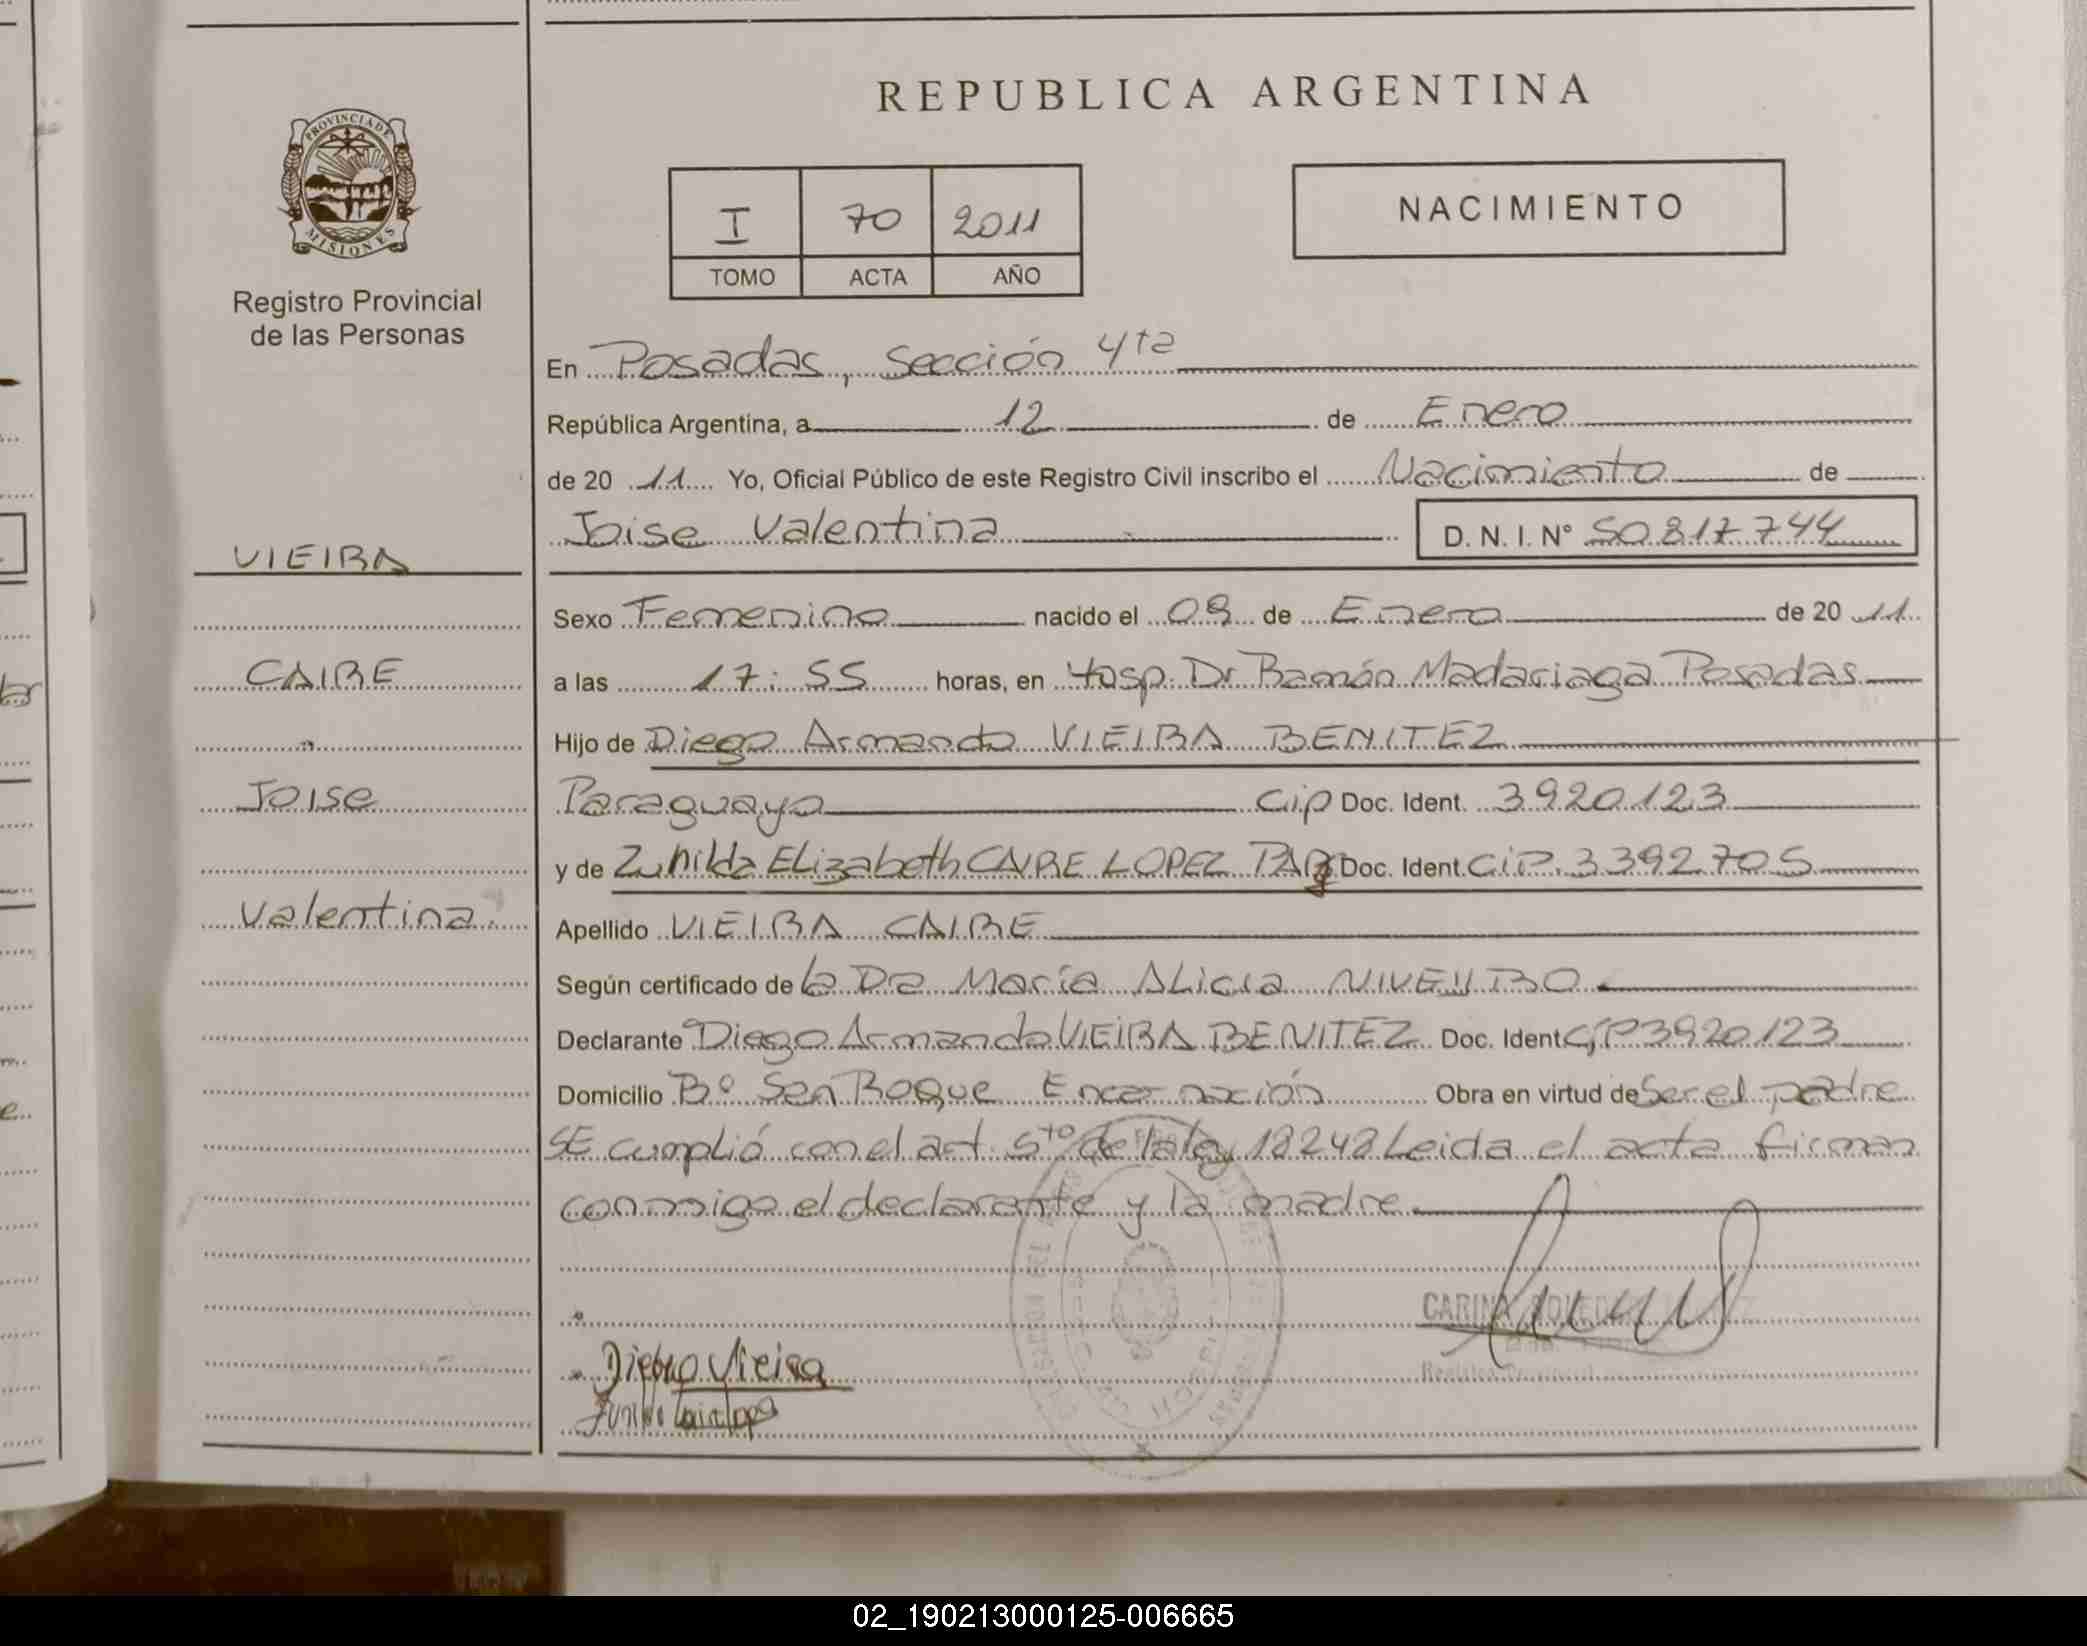 REPUBLICA ARGENTINA
PROVINCIA DE
MISIONES
Registro Provincial
de las Personas
I 70 2011
TOMO ACTA AÑO
NACIMIENTO
En Posadas, Sección 4ta
República Argentina, a 12 de Enero
de 20 11 Yo, Oficial Público de este Registro Civil inscribo el Nacimiento de
Joise Valentina D. N. I. Nº 50817744
VIEIRA
CAIRE
Joise
Valentina
Sexo Femenino nacido el 08 de Enero de 20 11
a las 17:55 horas, en Hosp. Dr Ramón Madariaga Posadas
Hijo de Diego Armando VIEIRA BENITEZ
Paraguayo Cip Doc. Ident. 3920123
y de Zunilda ELizabeth CAIRE LOPEZ Doc. Ident. CiP. 3392705
Apellido VIEIRA CAIRE
Según certificado de la Dra María ALicia
Declarante Diego Armando VIEIRA BENITEZ Doc. Ident CiP3920123
Domicilio Bº San Roque Encarnación Obra en virtud de Ser el padre
SE cumplió con el art 5to de la ley 18248 Leida el acta firman
conmigo el declarante y la madre
CARINA
Registro Provincial
Vieira
02_190213000125-006665